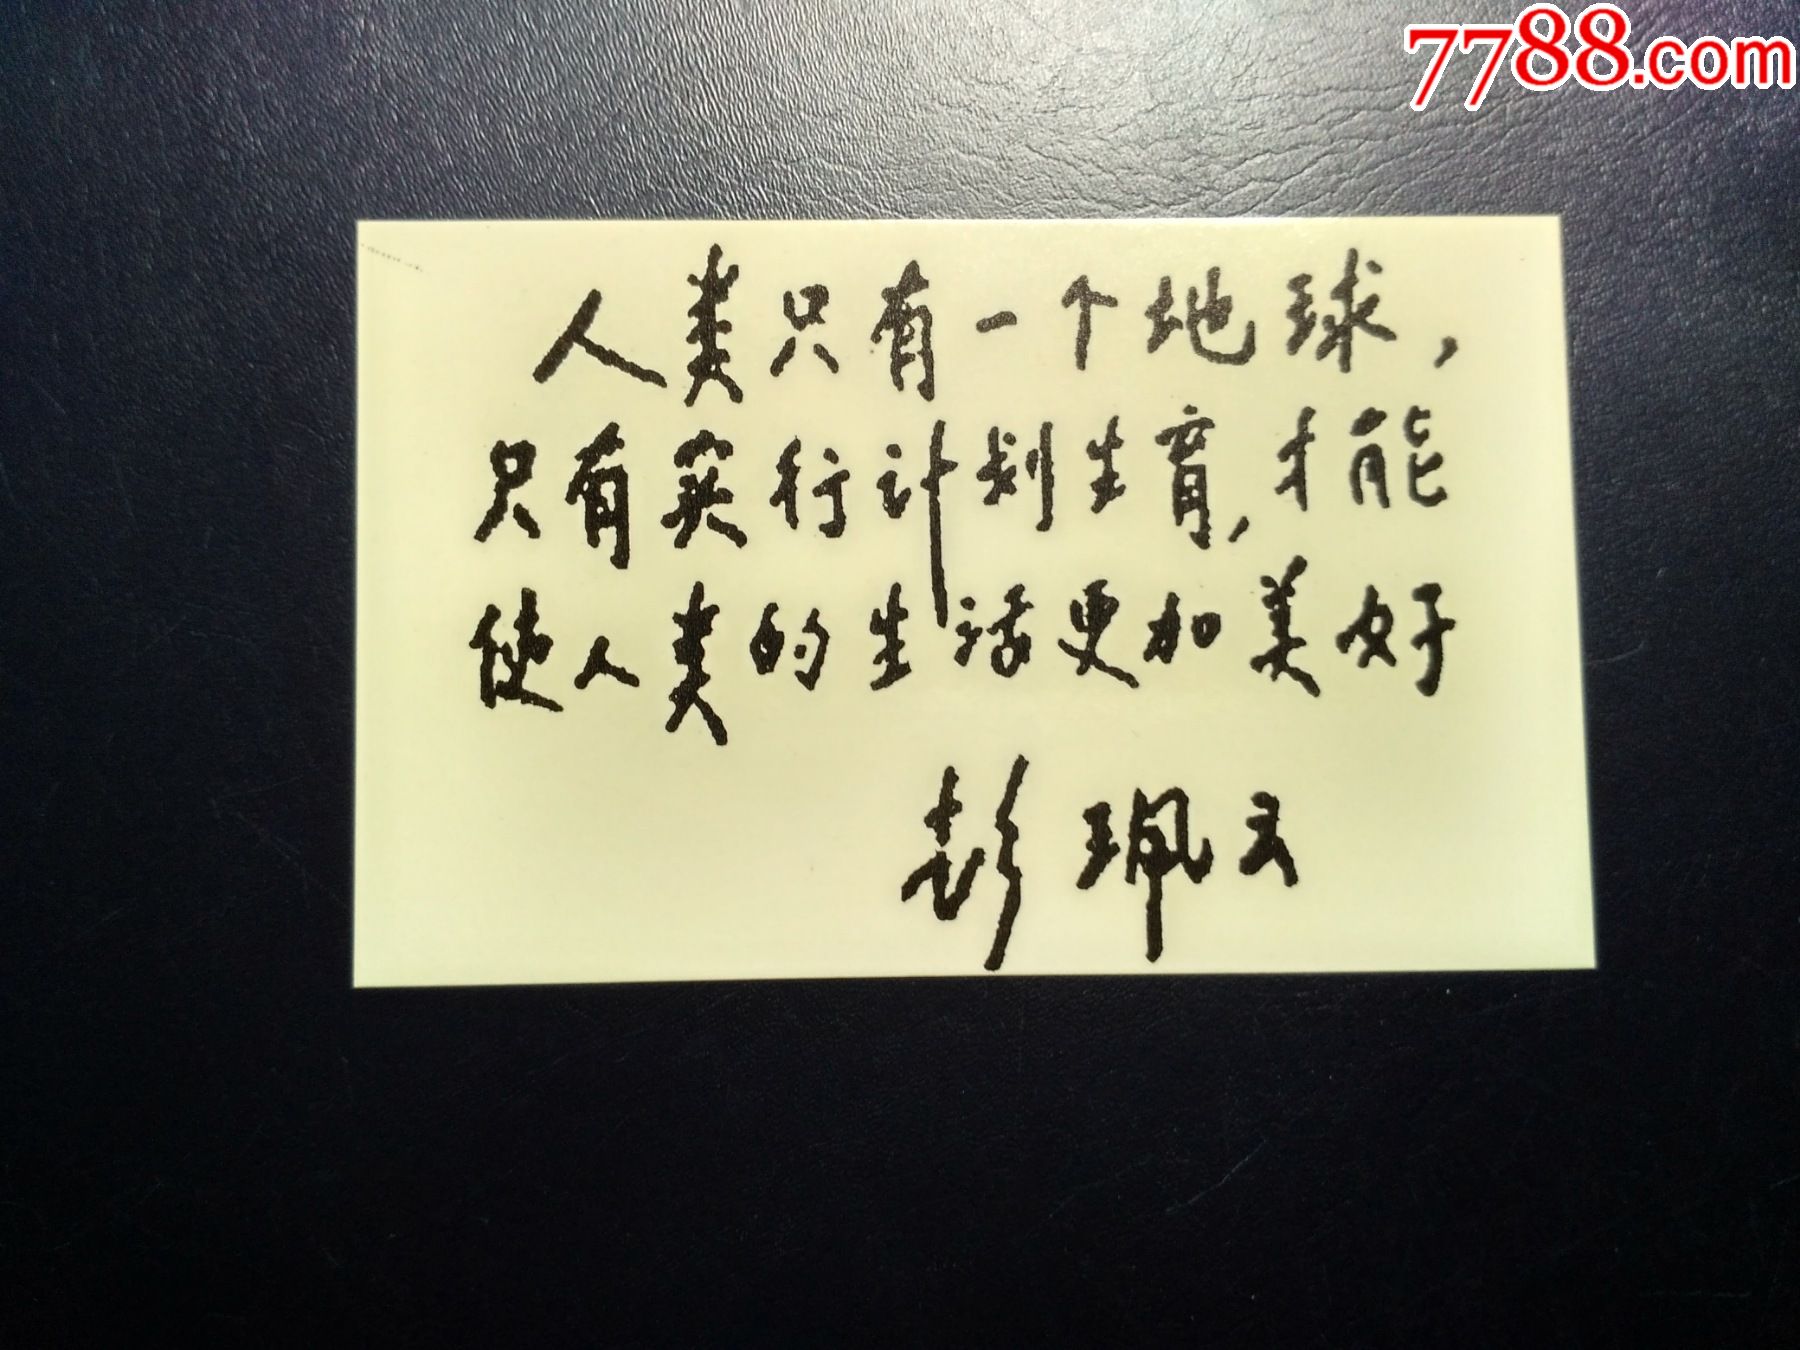 7788.com
人类只有一个地球，
只有实行计划生育，才能
使人类的生活更加美好
彭珮云